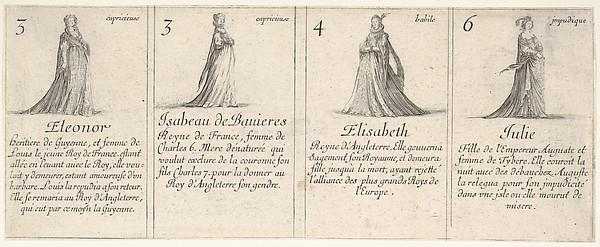 5 capricieuse
Eleonor
héritiere de Guyenne, et femme de
Louis le jeune Roy de France. estant
allée en leuant auec le Roy, elle vou-
loit y demeurer, estant amoureuse d'un
barbare. Louis la repudia a son retour.
Elle se remaria au Roy d'Angleterre,
qui eut par ce moyn la Guyenne.
3 capricieuse
Isabeau de Bauieres
Reyne de France, femme de
Charles 6. Mere dénaturée qui
voulut exclure de la couronne son
fils Charles 7. pour la donner au
Roy d'Angleterre son gendre.
4 habile
Elisabeth
Reyne d'Angleterre. Elle gouuerna
sagement son Royaume, et demeura
fille jusqua la mort, ayant rejetté
l'alliance des plus grands Roys de
l'Europe.
6 impudique
Iulie
Fille de l'Empereur Auguste et
femme de Tybere. Elle couroit la
nuit auec des debauchez. Auguste
la relegua pour son impudicité
dans vne isle ou elle mourut de
misere.